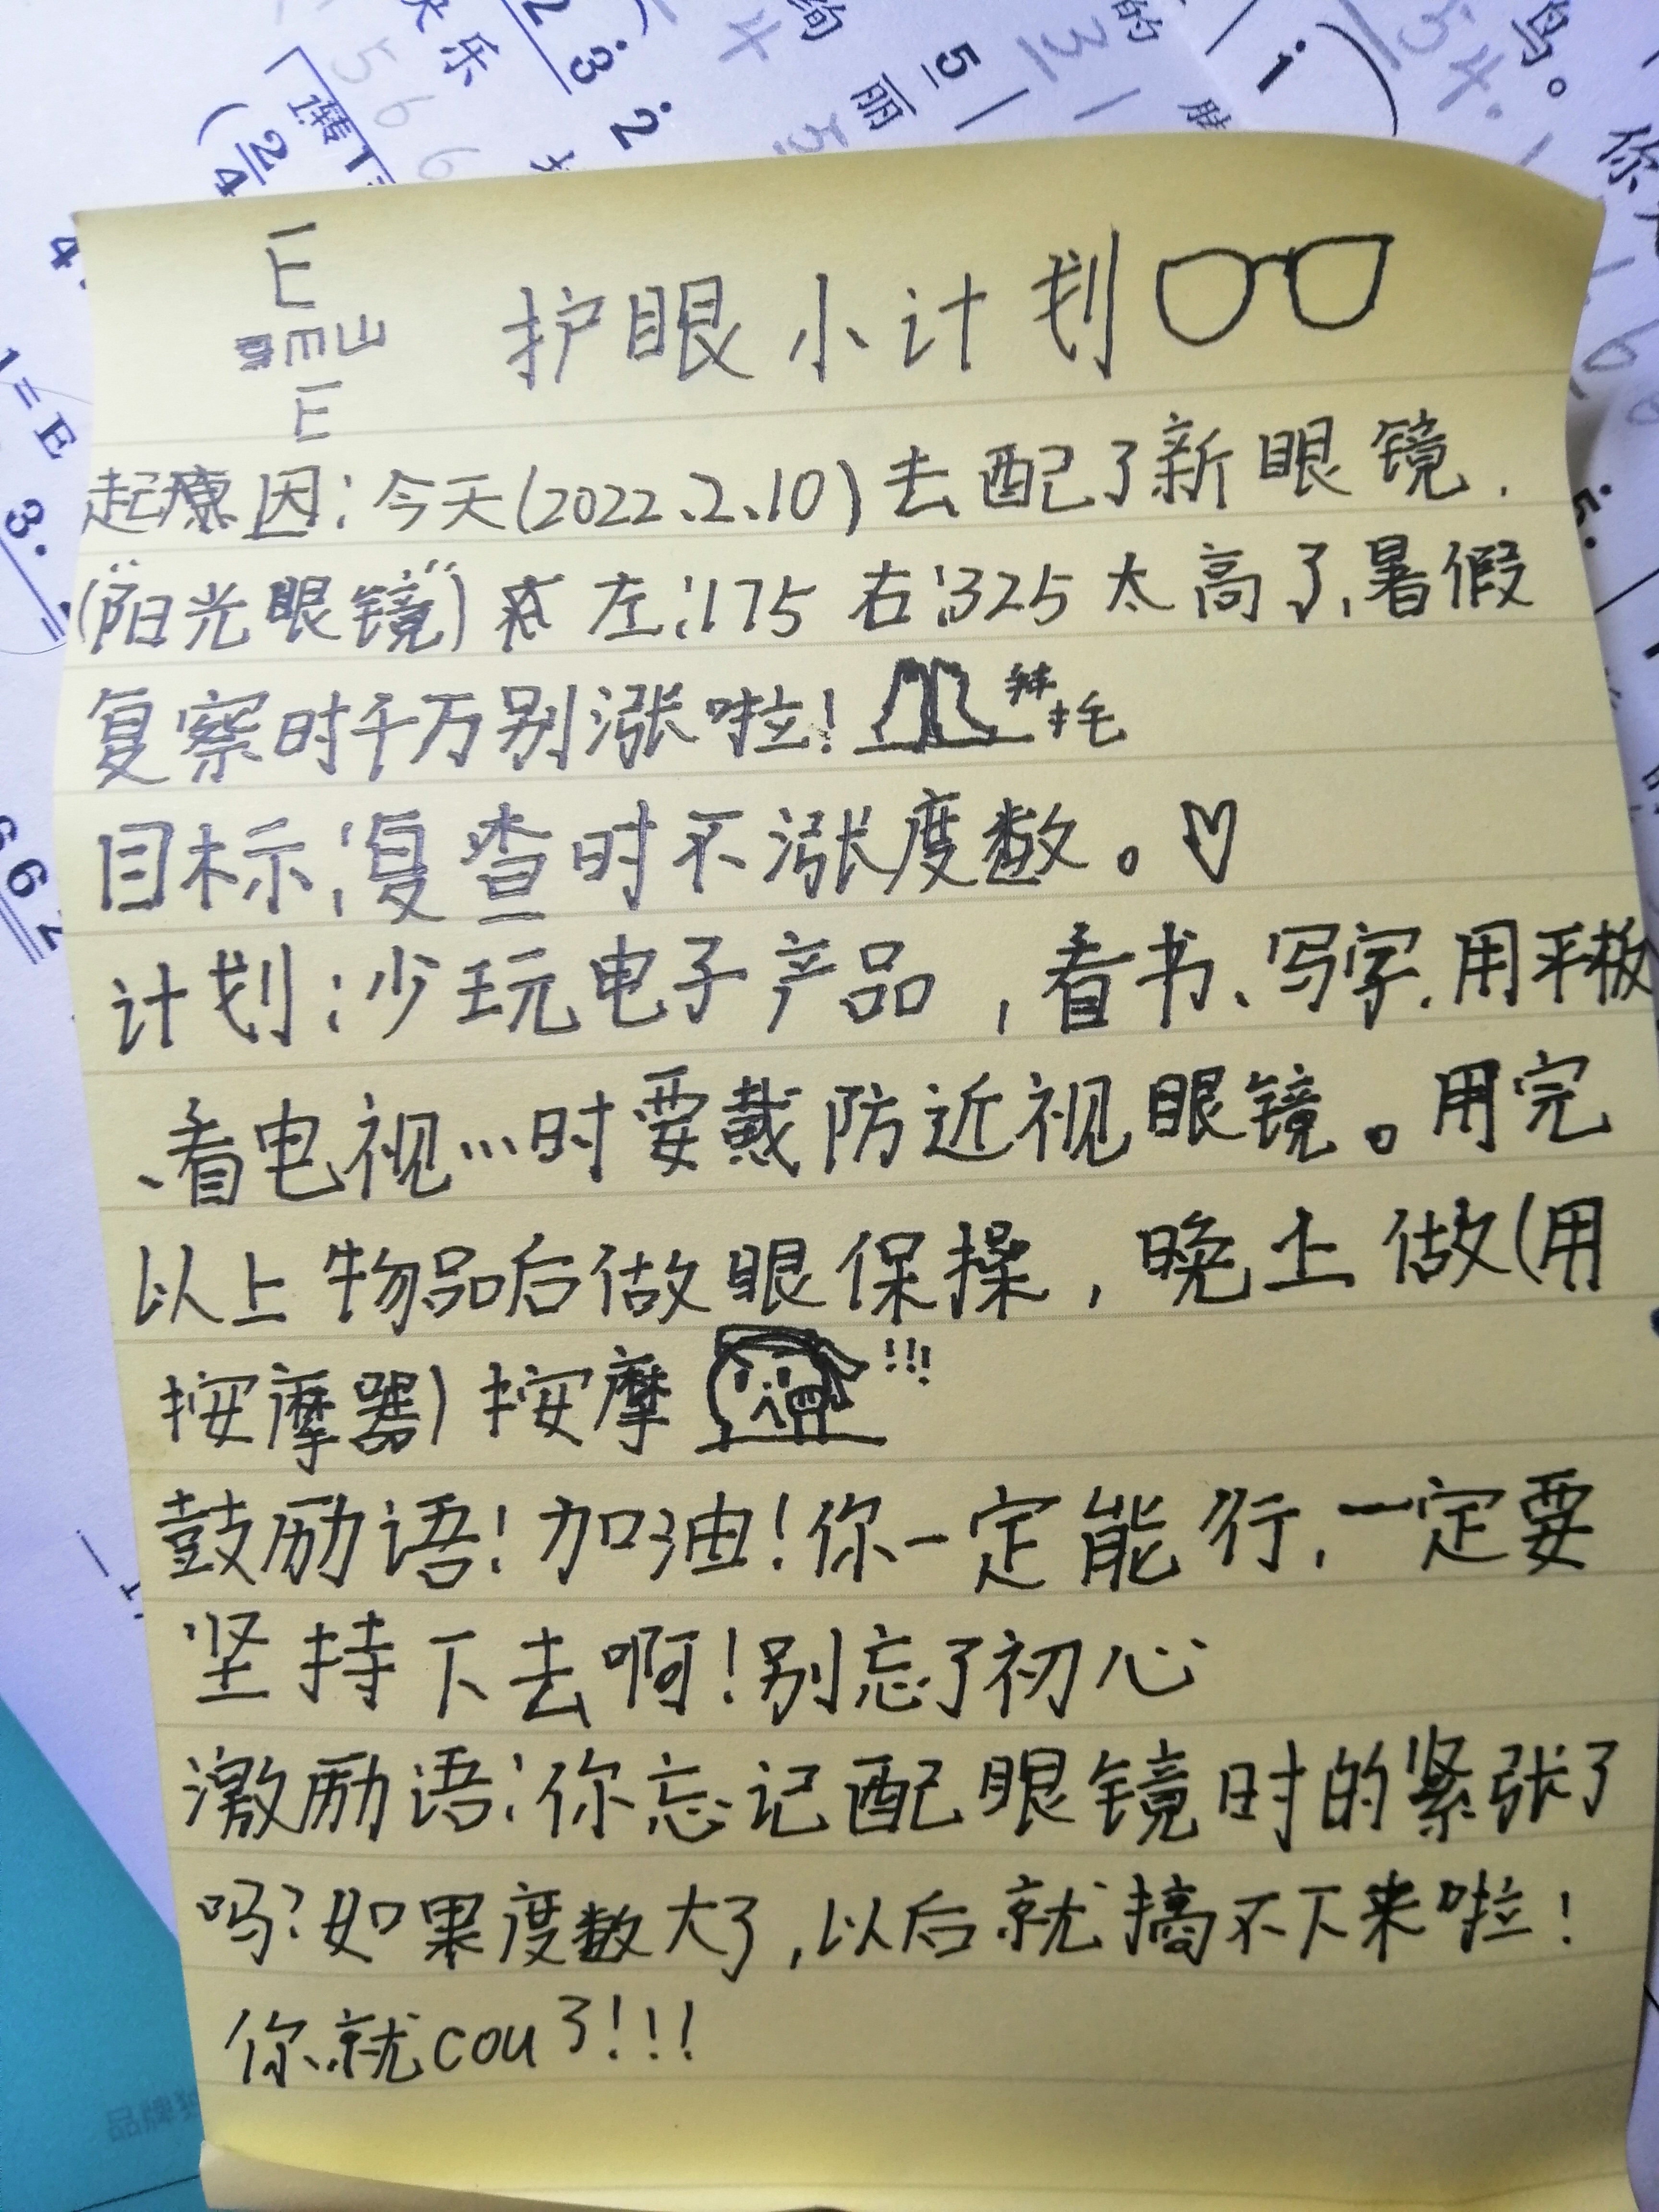 护眼小计划
起因：今天(2022.2.10)去配了新眼镜.
("阳光眼镜") 左：175 右：325 太高了，暑假
复察时千万别涨啦！
目标：复查时不涨度数。♡
计划：少玩电子产品，看书、写字、用平板
、看电视…时要戴防近视眼镜。用完
以上物品后做眼保操，晚上做(用
按摩器)按摩 !!!
鼓励语！加油！你一定能行，一定要
坚持下去啊！别忘了初心
激励语：你忘记配眼镜时的紧张了
吗？如果度数大了，以后就搞不下来啦！
你就cou了!!!